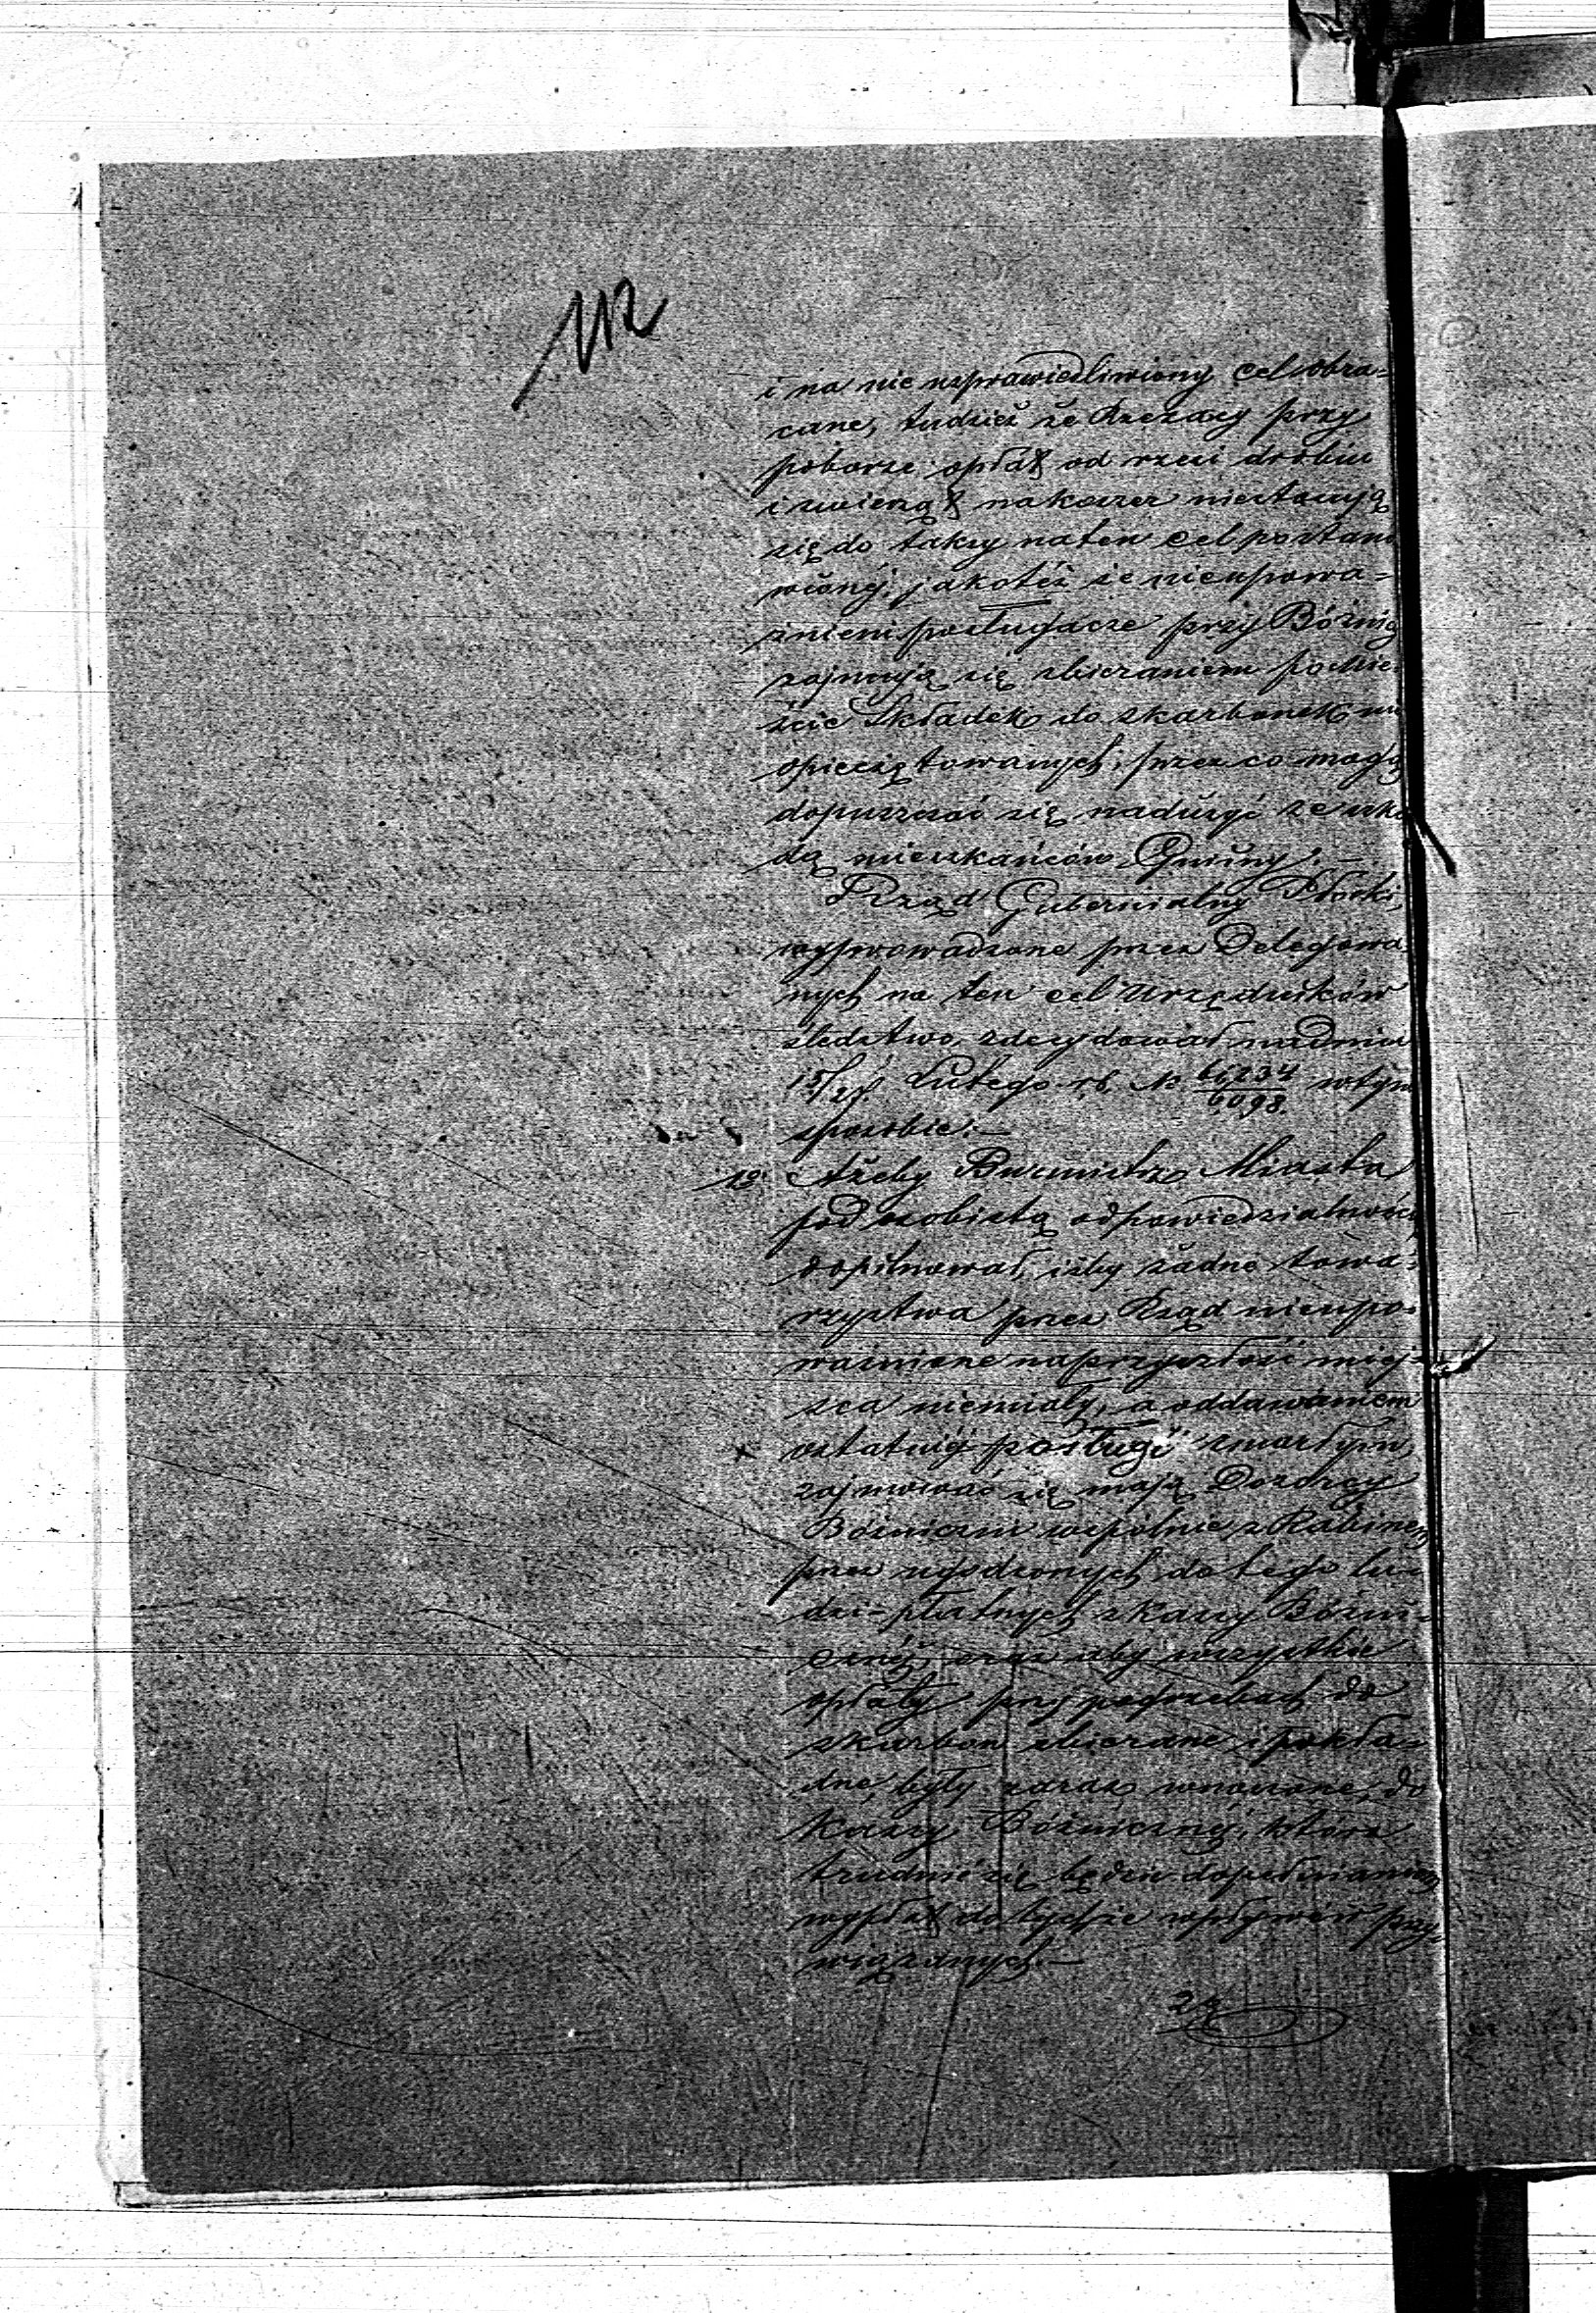 112
i na nie usprawiedliwiony cel obra-
cane, tudzież że Rzezacy przy
poborze opłat od rzezi drobiu
i zwierząt na koszer niestosują
się do taksy na ten cel postano
wionéj, jakotéż że nieupowa-
żnieni posługacze przy Bóżnicy
zajmują się zbieraniem po Mie
ście Składek do skarbonek nie
opieczętowanych, przez co mogą
dopuszczać się nadużyć ze szko
dą mieszkańców Gminy.—
Rząd Gubernialny Płocki,
wyprowadzone przez Delegowa
nych na ten cel Urzędników
śledztwo, zdecydował na dniu
15/27 Lutego r.b. № 66234/6098 w tym
sposobie:—
1º Ażeby Burmistrz Miasta
pod osobistą odpowiedzialnością
dopilnował, iżby żadne towa-
rzystwa przez Rząd nieupo-
ważnione na przyszłość miej-
sca niemiały, a oddawaniem
ostatniéj posługi zmarłym,
zajmować się mają Dozorcy
Bóżniczni wspólnie z Rabinem
przez zgodzonych do tego lu-
dzi - płatnych z kassy Bóżni-
cznéj, oraz aby wszystkie
opłaty przy pogrzebach do
skarbon zbierane i pokła-
dne, były zaraz wnoszone do
Kassy Bóżnicznéj, która
trudnić się będzie dopełnianiem
wypłat do tychże wpływów przy-
wiązanych.—
2º